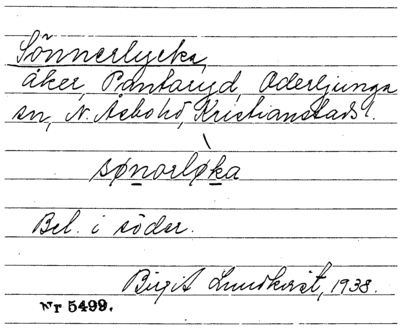 Sönnerlycka,
åker, Pantaryd, Oderljunga
sn, N. Åsbo hd, Kristianstads l.
sønorløka
Bel. i söder.
Birgit Lundkvist, 1938.
Nr 5499.